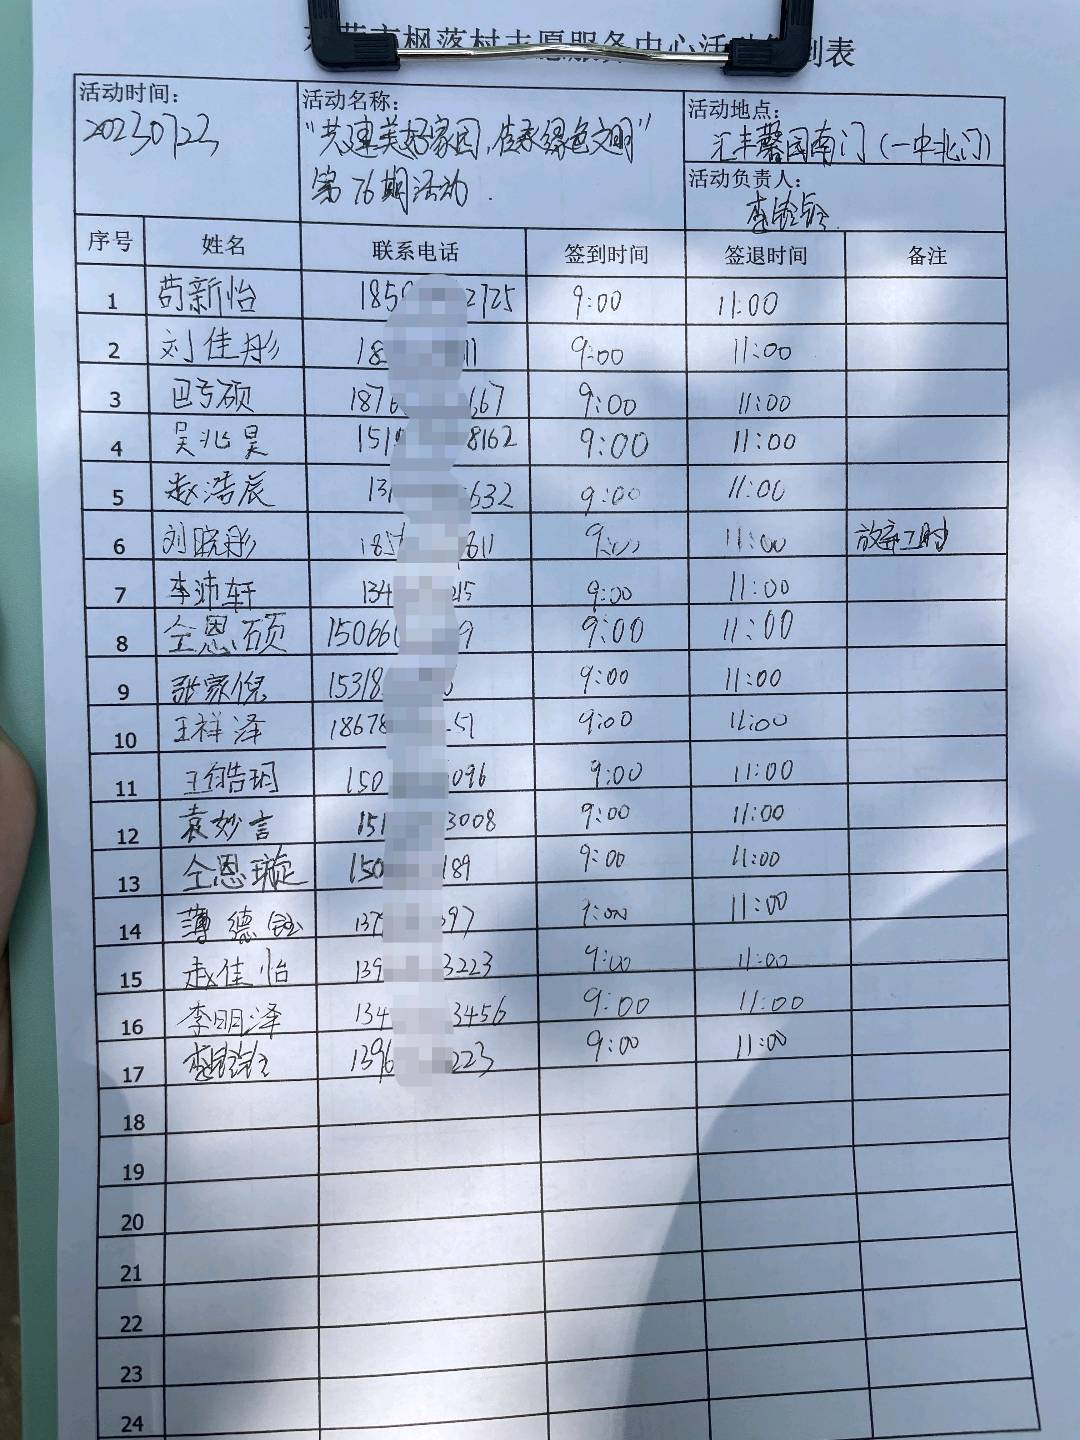 枫落村志愿服务中心活动 到表
活动时间：
20230723
活动名称：
"共建美好家园，传承绿色文明"
第76期活动.
活动地点：
汇丰馨园南门（一中北门）
活动负责人：
序号 姓名 联系电话 签到时间 签退时间 备注
1 苟新怡 185 2725 9:00 11:00
2 刘佳彤 18 11 9:00 11:00
3 巴亏硕 1876 667 9:00 11:00
4 吴兆昊 151 8162 9:00 11:00
5 赵浩辰 13 632 9:00 11:00
6 刘晓彤 185 611 9:00 11:00 放弃工时
7 李沛轩 134 215 9:00 11:00
8 仝恩硕 15066 9 9:00 11:00
9 张家倪 15318 9:00 11:00
10 王祥泽 18678 51 9:00 11:00
11 王皓玥 150 096 9:00 11:00
12 袁妙言 151 3008 9:00 11:00
13 仝恩璇 150 189 9:00 11:00
14 薄德 137 397 9:00 11:00
15 赵佳怡 139 3223 9:00 11:00
16 李明泽 134 3456 9:00 11:00
17 1396 223 9:00 11:00
18
19
20
21
22
23
24